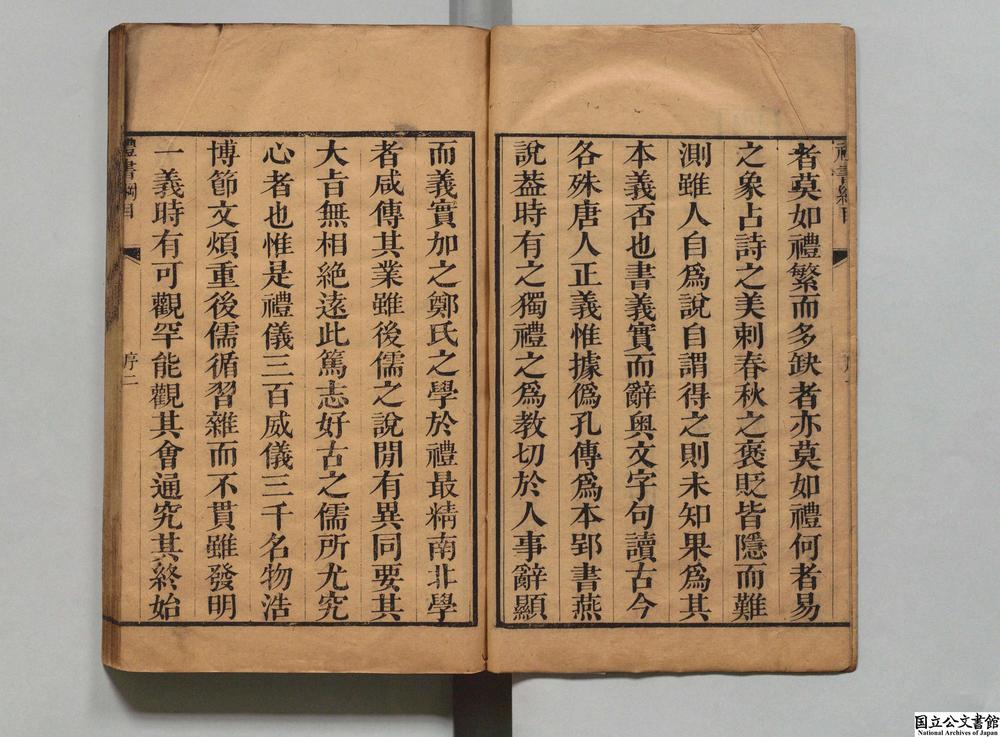 者莫如禮繁而多缺者亦莫如禮何者易
之象占詩之美刺春秋之褒貶皆隱而難
測雖人自爲說自謂得之則未知果爲其
本義否也書義實而辭奧文字句讀古今
各殊唐人正義惟據僞孔傳爲本郢書燕
說葢時有之獨禮之爲教切於人事辭顯
而義實加之鄭氏之學於禮最精南北學
者咸傳其業雖後儒之說閒有異同要其
大㫖無相絶遠此篤志好古之儒所尤究
心者也惟是禮儀三百威儀三千名物浩
博節文煩重後儒循習雜而不貫雖發明
一義時有可觀罕能觀其會通究其終始
禮書綱目
序二
国立公文書館
National Archives of Japan